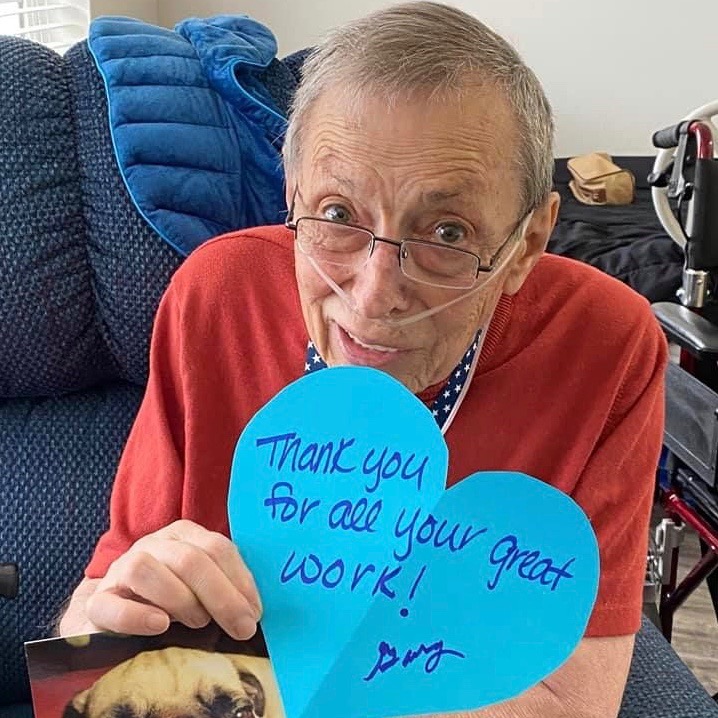 Thank you
for all your great
work!
Gary